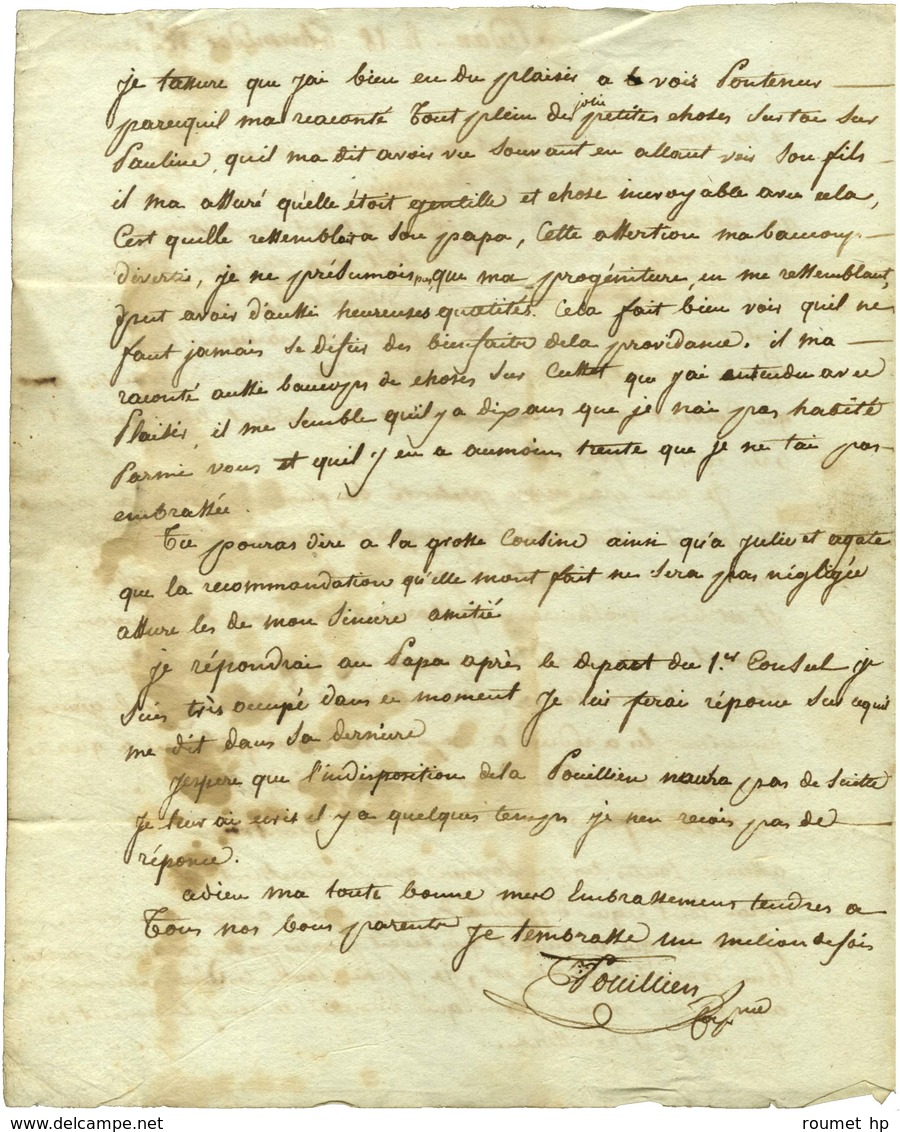 je tassure que jai bien eu du plaisir a voir Pontenur
parcequil ma raconté tout plein de join petites choses sur toi sur
Pauline, quil ma dit avoir vu souvant en allant voir son fils
il ma assuré qu'elle étoit gentille et chose incroyable avec cela,
C'est quelle ressemblera son papa, Cette assertion ma baucoup
diverti, je ne présumois pas, que ma progéniture, en me ressemblant,
put avoir d'aussi heureuses qualités. Cela fait bien voir quil ne
faut jamais se défier des bienfaits dela providance. il ma
raconté aussi baucoups de choses sur Cusset que jai entendu avec
Plaisir, il me semble quil y a dix ans que je nai pas habité
Parmi vous et quil y en a aumoins trente que je ne tai pas
embrassée.
Tu pouras dire a la grosse Cousine ainsi qu'a julie et agate
que la recommandation qu'elle mont fait ne sera pas négligée
assure les de mon sincere amitié
je répondrai au Papa après le depart du 1.er Consul je
suis très occupé dans ce moment Je lui ferai réponce sur cequil
me dit dans sa derniere
Jespere que l'indisposition dela Pouillien naura pas de suitte
Je leur ai écrit il y a quelques temps je nen recois pas de
réponce.
adieu ma toute bonne mes Embrassemens tendres a
Tous nos bons parents Je tembrasse un milion de fois
Pouillien